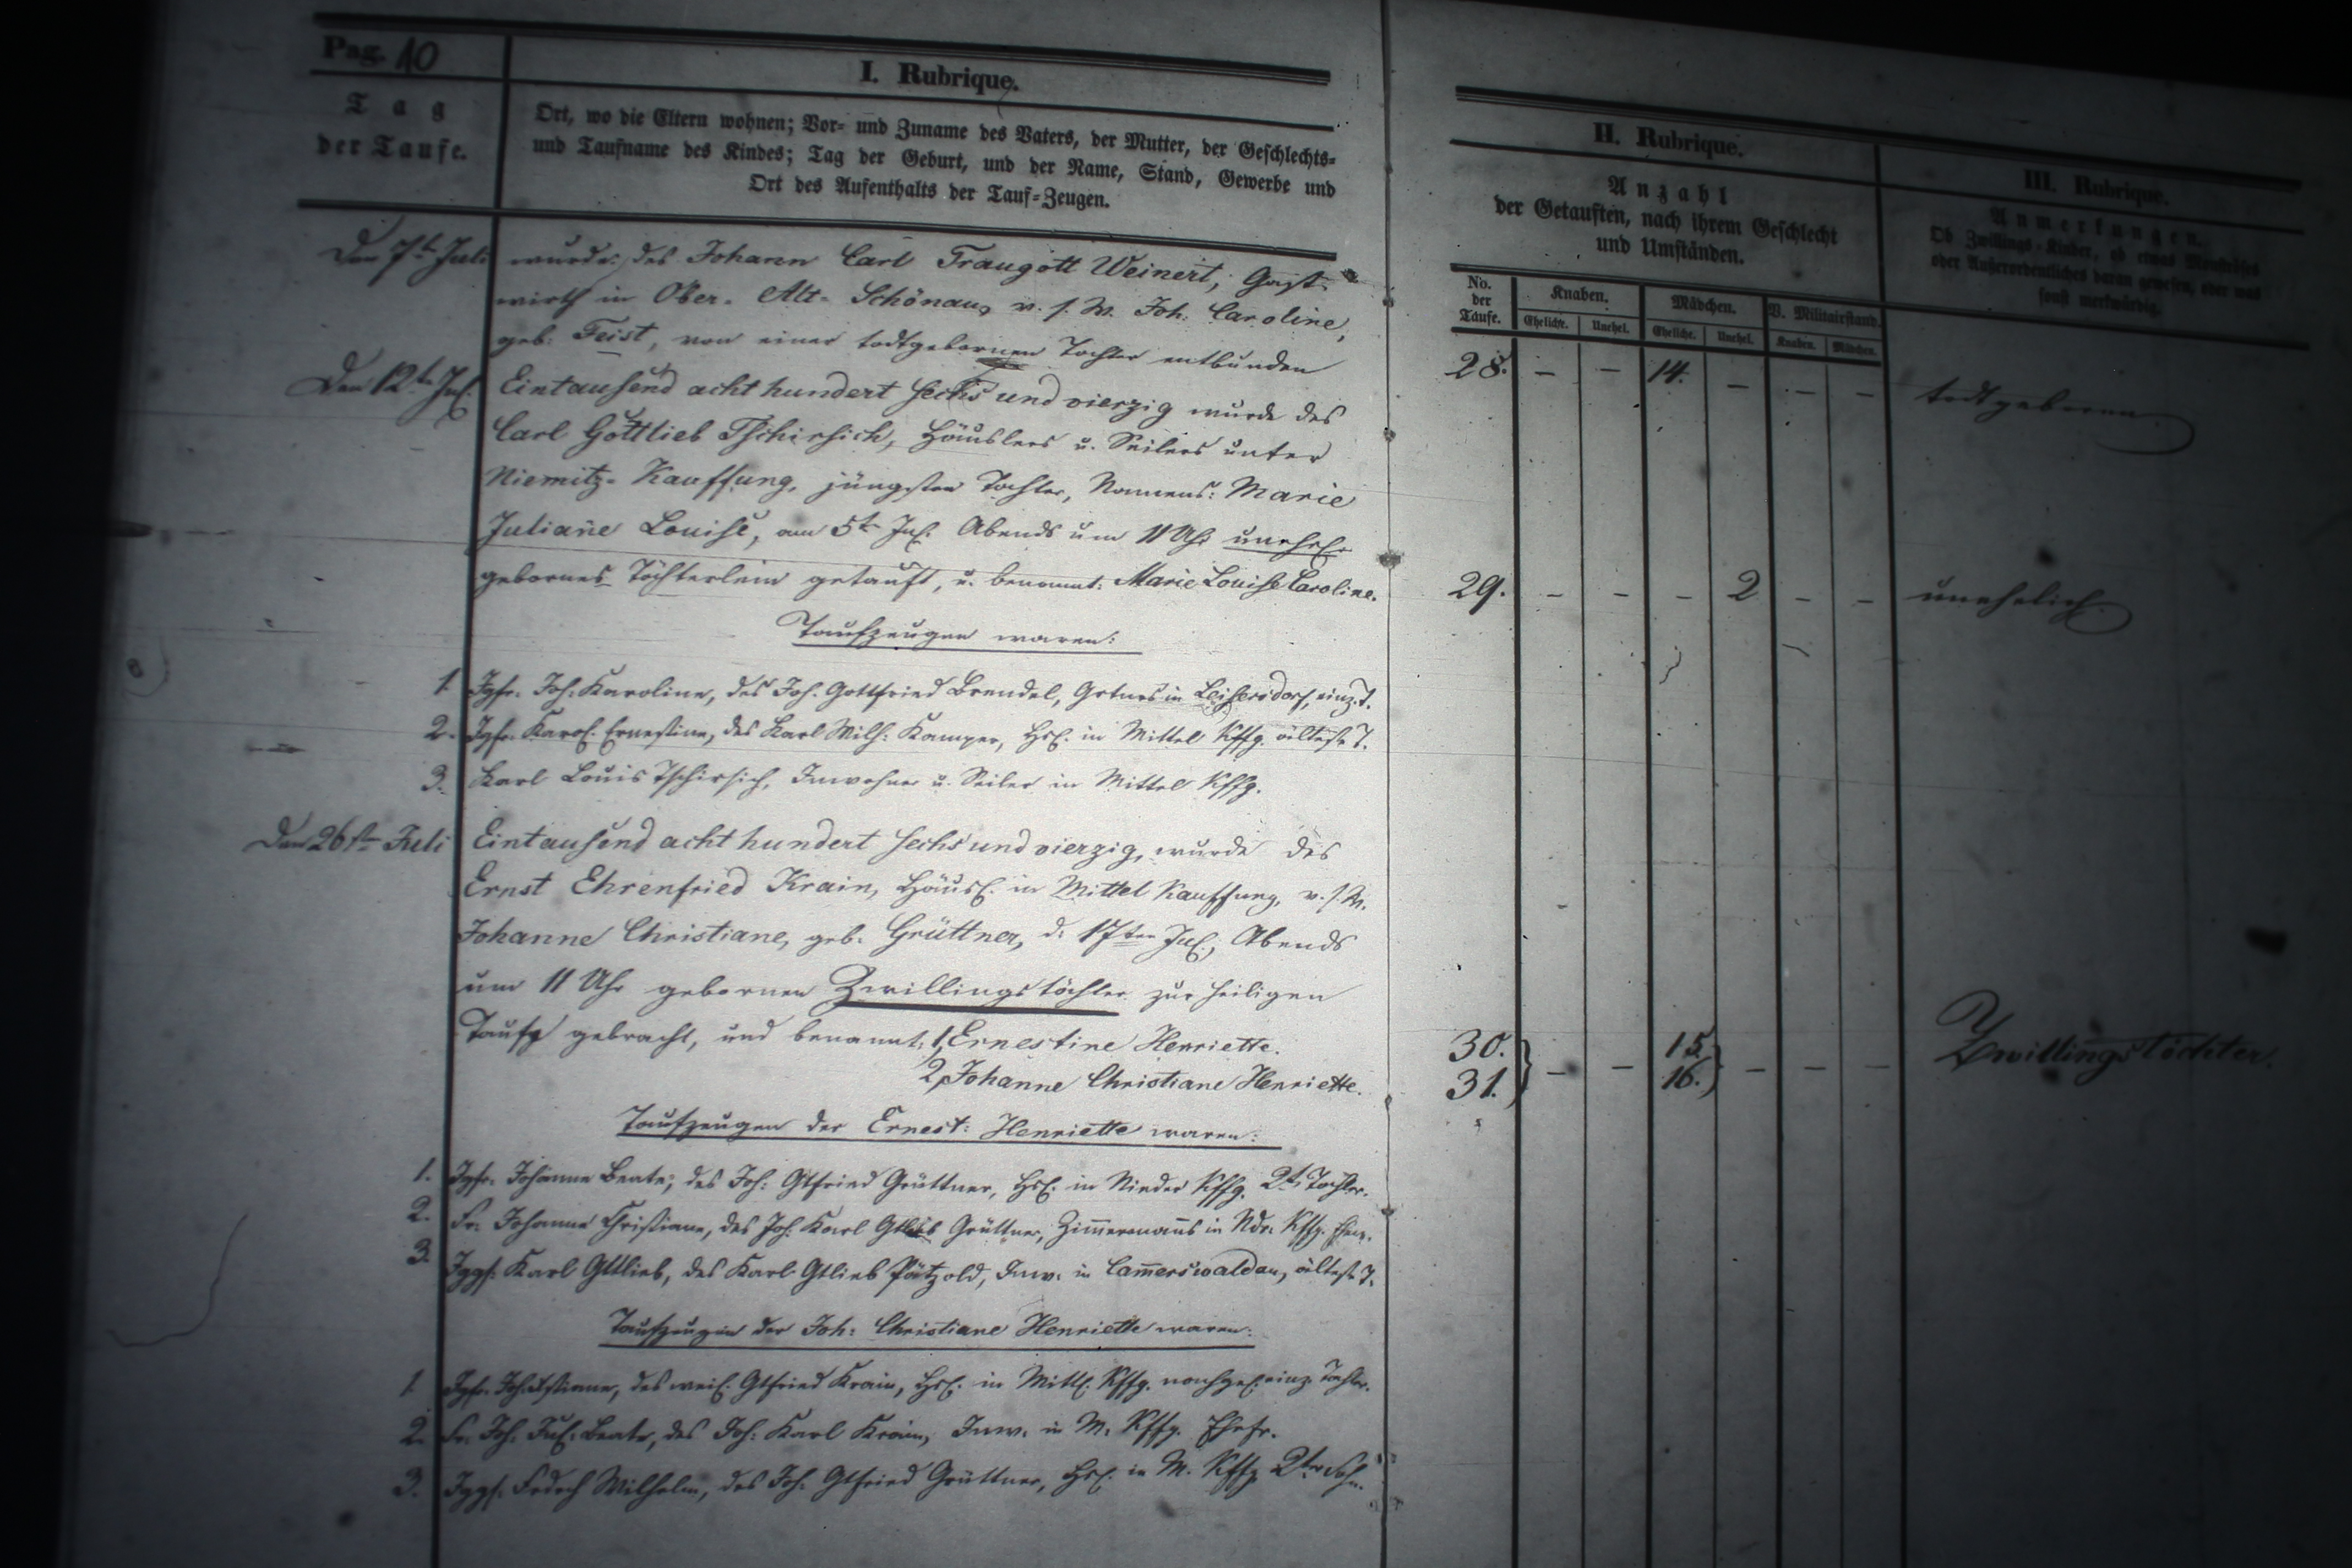 Pag. 10
I. Rubrique.
Tag
der Taufe.
Ort, wo die Eltern wohnen; Vor- und Zuname des Vaters, der Mutter, der Geschlechts-
und Taufname des Kindes; Tag der Geburt, und der Name, Stand, Gewerbe und
Ort des Aufenthalts der Tauf-Zeugen.
II. Rubrique.
Anzahl
der Getauften, nach ihrem Geschlecht
und Umständen.
III. Rubrique.
Anmerkungen.
Ob Zwillings-Kinder, ob etwas
oder Außerordentliches daran gewesen, oder was
sonst merkwürdig.
No. der Taufe.
Knaben. Mädchen. V. Militairstand.
Ehelich. Unehel. Eheliche. Unehel. Knaben. Mädchen.
Den 7t Juli wurde: des Johann Carl Traugott Weinert, Gast-
wirth in Ober-Alt-Schönau, v. s. W. Joh. Caroline,
geb: Feist, von einer todtgebornen Tochter entbunden
28. – – 14. – – – todtgeboren
Den 12t Jul. Eintausend acht hundert sechs und vierzig wurde des
Carl Gottlieb Tschirsich, Häuslers u. Seilers unter
Niemitz-Kauffung, jüngsten Tochter, Namens: Marie
Juliane Louise, am 5t Jul. Abends um 11 Uhr unehel.
gebornes Töchterlein getauft, u. benannt: Marie Louise Caroline.
29. – – – 2 – – unehelich.
Taufzeugen waren:
1. Jgfr. Joh: Karoline, des Joh. Gottfried Brendel, Grtners in Leisersdorf, einz. T.
2. Jgfr. Karol. Ernestine, des Karl Wilh: Kamper, Hsl. in Mittel Kffg. älteste T.
3. Karl Louis Tschirsich, Inwohner u. Seiler in Mittel Kffg.
Den 26st Juli Eintausend acht hundert sechs und vierzig, wurde des
Ernst Ehrenfried Krain, Häusl. in Mittel Kauffung, v. s. W.
Johanne Christiane, geb. Grüttner, d. 17ten Jul., Abends
um 11 Uhr gebornen Zwillingstöchter zur heiligen
Taufe gebracht, und benannt: 1, Ernestine Henriette.
2, Johanne Christiane Henriette.
30. – – 15. – – – Zwillingstöchter.
31. 16.
Taufzeugen der Ernest: Henriette waren:
1. Jgfr. Johanne Beate, des Joh: Gtfried Grüttner, Hsl. in Nieder Kffg. 2t. Tochter.
2. Fr. Johanne Christiane, des Joh. Karl Gtlieb Grüttner, Zimmermanns in Ndr. Kffg.
3. Jggs. Karl Gttlieb, des Karl Gtlieb Pätzold, Inw. in Camerswaldau, älteste
Taufzeugen der Joh: Christiane Henriette waren:
1. Jgfr. des weil. Gtfried Krain, Hsl. in Mittl. Kffg. nachgel. einz. Tochter.
2. Fr. Joh. Jul. Beate, des Joh. Karl Krain, Inw. in M. Kffg. Ehefr.
3. Jggs. Fedrch Wilhelm, des Joh. Gtfried Grüttner, Hsl. in M. Kffg 2ter Sohn.